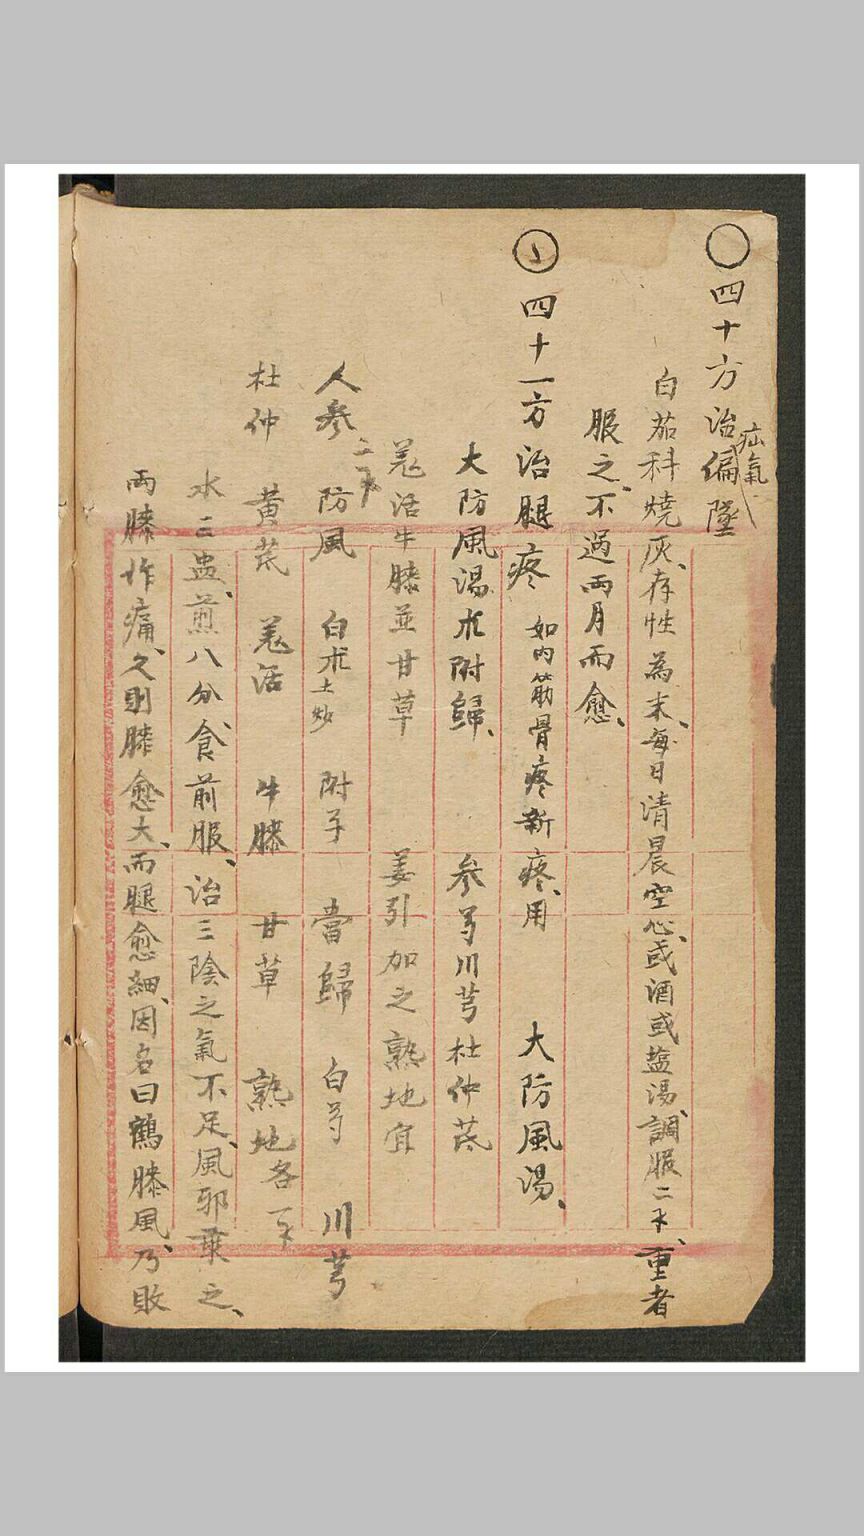 〇四十方治偏墜
疝氣
白茄科燒灰、存性為末、每日清晨空心、或酒或盐湯、調服二、重者
服之、不過兩月而愈、
四十一方治腿疼 如內筋骨疼新疼、用 大防風湯、
大防風湯朮附歸、 參芎川芎杜仲芪
羌活牛膝並甘草 姜引加之熟地宜
人參二 防風 白朮土炒 附子 當歸 白芍 川芎
杜仲 黃芪 羌活 牛膝 甘草 熟地各一
水二盅、煎八分、食前服、治三陰之氣不足、風邪乘之、
兩膝作痛、久則膝愈大、而腿愈細、因名曰鶴膝風、乃敗